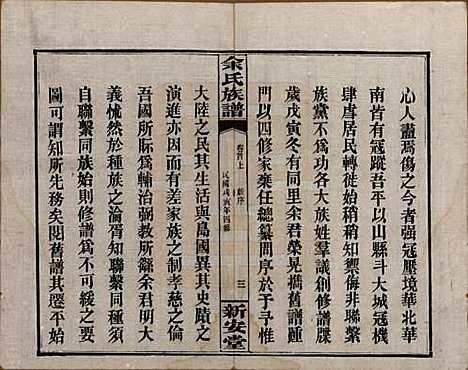 心人盡焉傷之今者強寇壓境華北華
南皆有寇蹤吾平以山縣斗大城寇機
肆虐居民轉徙始稍稍知禦侮非聯繫
族黨不為功於以各大族姓羣議創修譜牒
歲戊寅冬有同里余君榮晃攜舊譜踵
門以四修家乘任總纂問序於予予惟
余氏族譜
卷首上
新序
民國戊寅年四修
三
新安堂
大陸之民其生活與島國異其史蹟之
演進亦因而有差家族之制孝慈之倫
吾國所恃為輔治弼教所繇余君明大
義怵然於種族之淪胥知聯繫同種須
自聯繫同族始則修譜為不可緩之要
圖可謂知所先務矣閱舊譜其遷平始